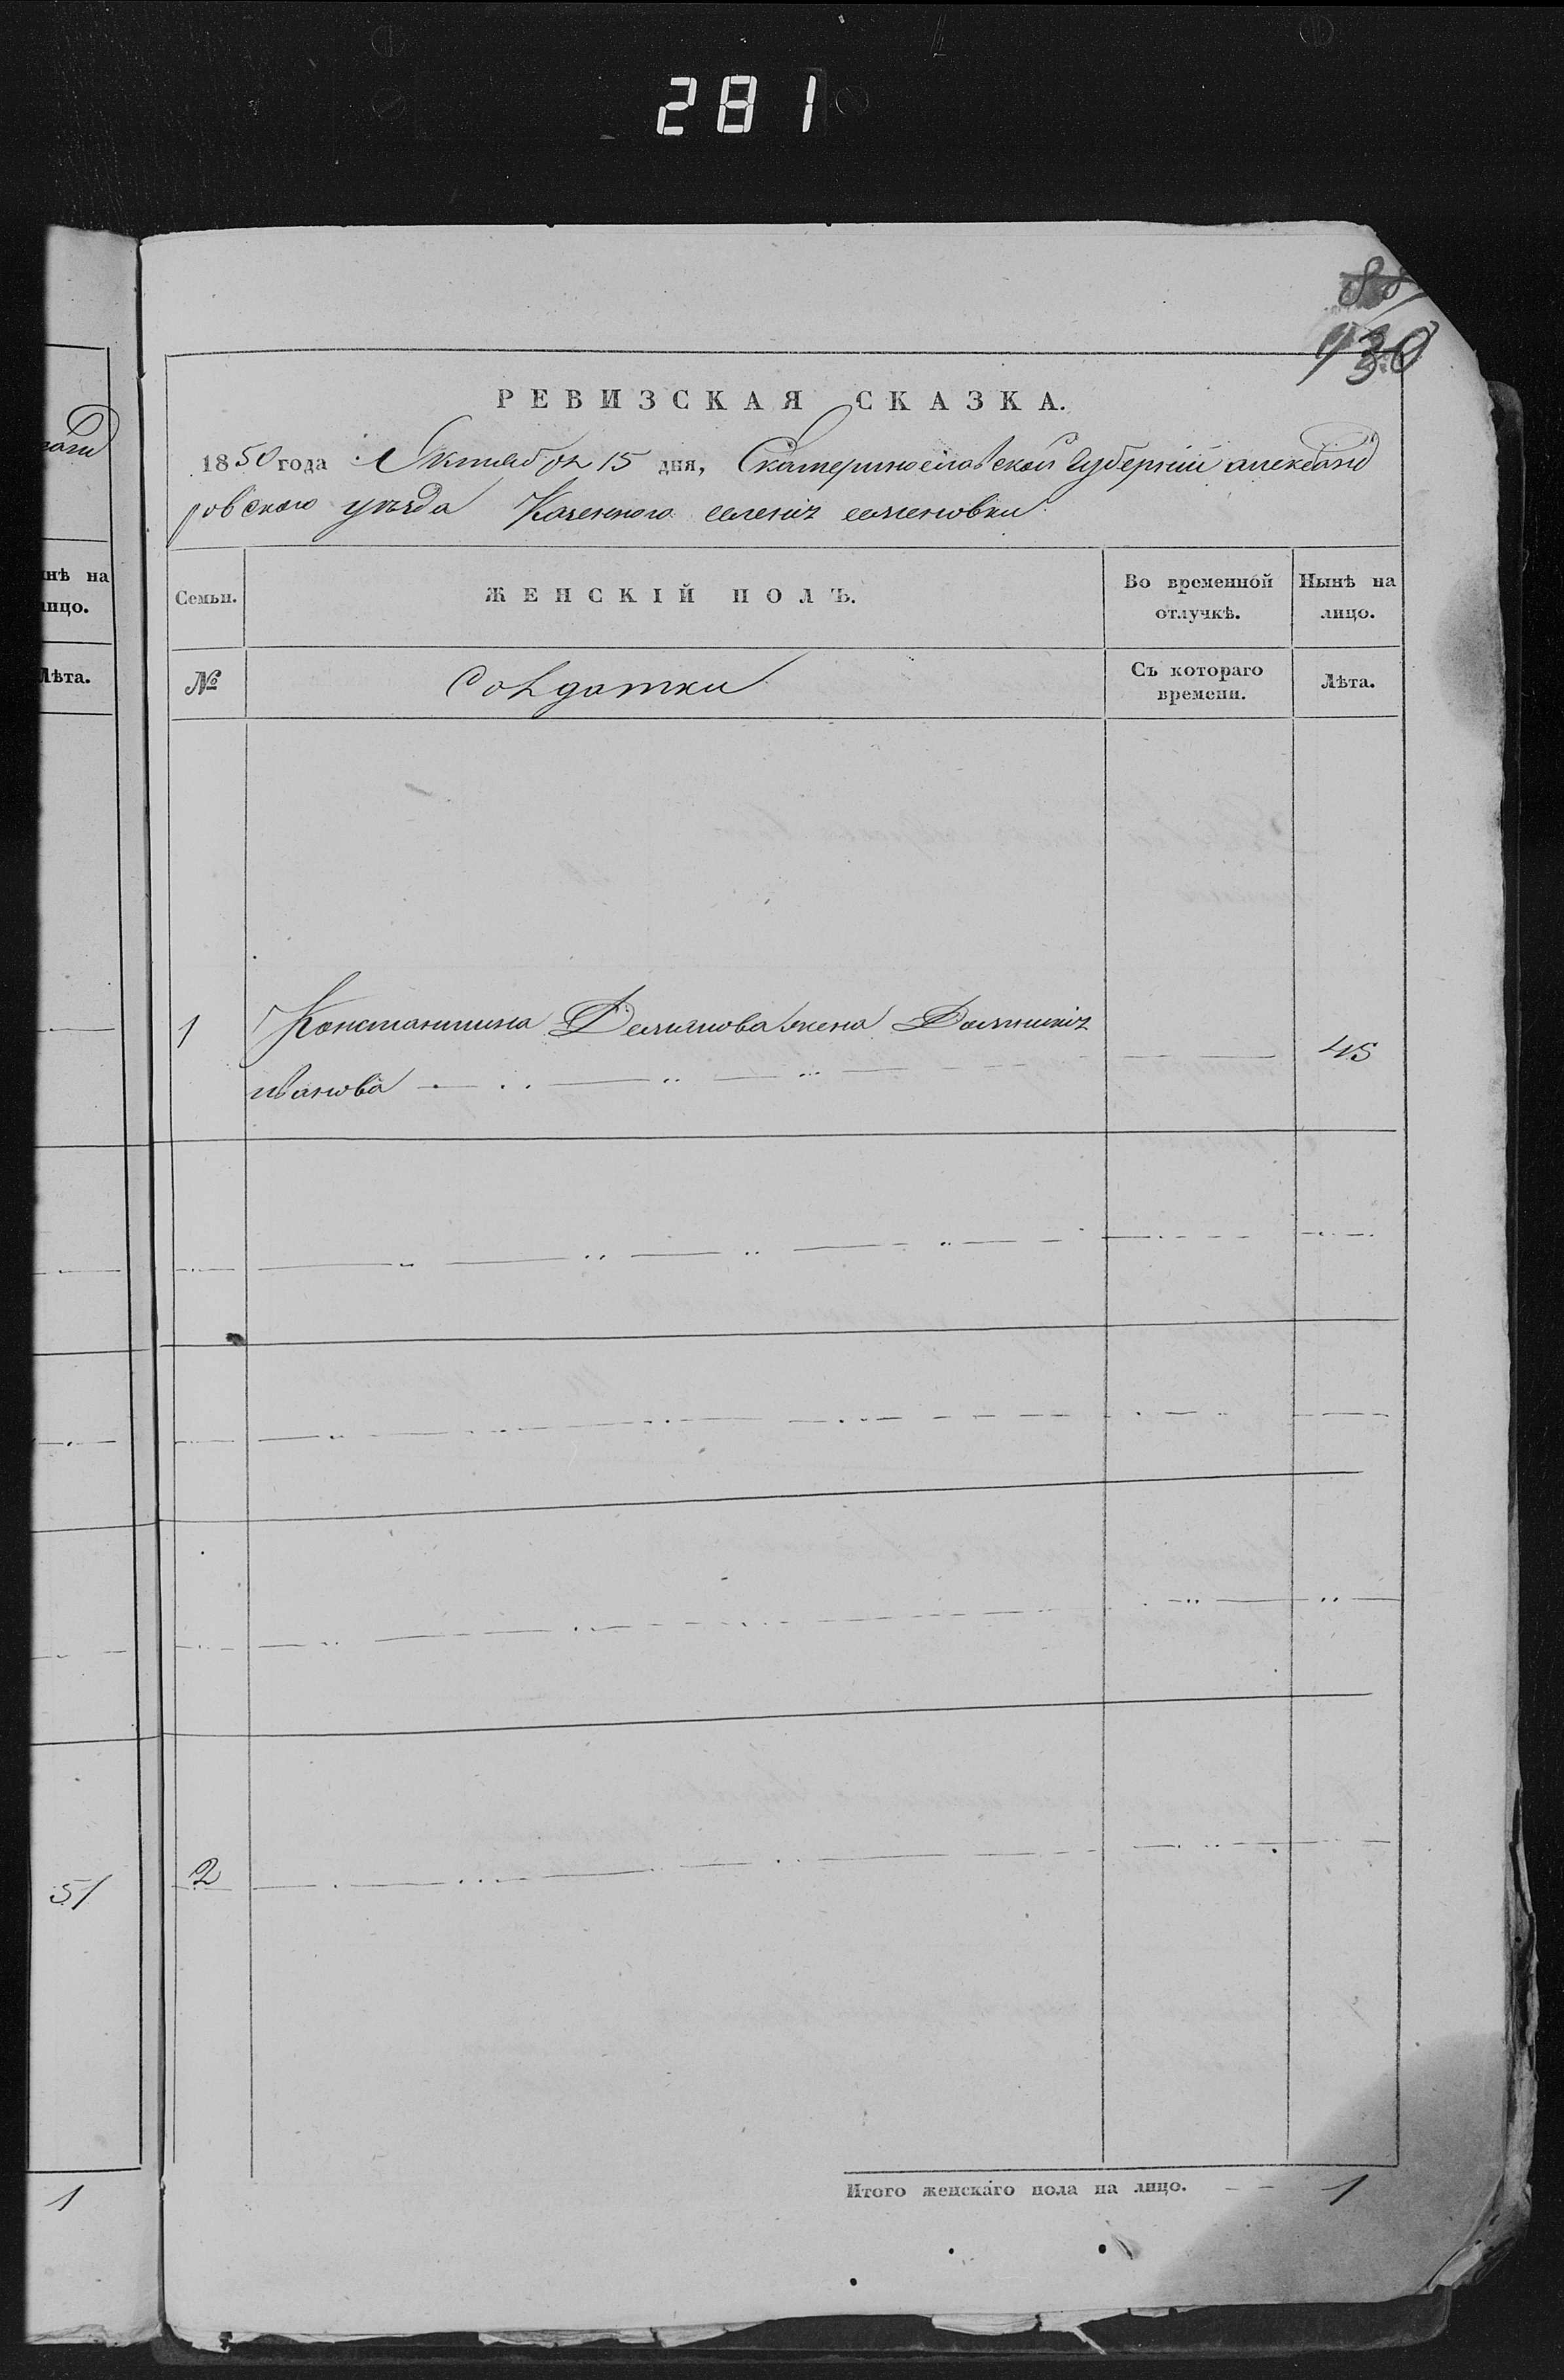 281
88
130
РЕВИЗСКАЯ СКАЗКА.
1850 года Октября 15 дня, Екатеринославской губерніи александ
ровского уезда Казенного селенія семеновки
нѣ на
ицо.
Лѣта.
Семьи.
ЖЕНСКІЙ ПОЛЪ.
Во временной
отлучкѣ.
Нынѣ на
лицо.
№
Солдатки
Съ котораго
времени.
Лѣта.
1 Константина Демянова жена Домникія
иванова 45
51
2
1
Итого женскаго пола на лицо. 1